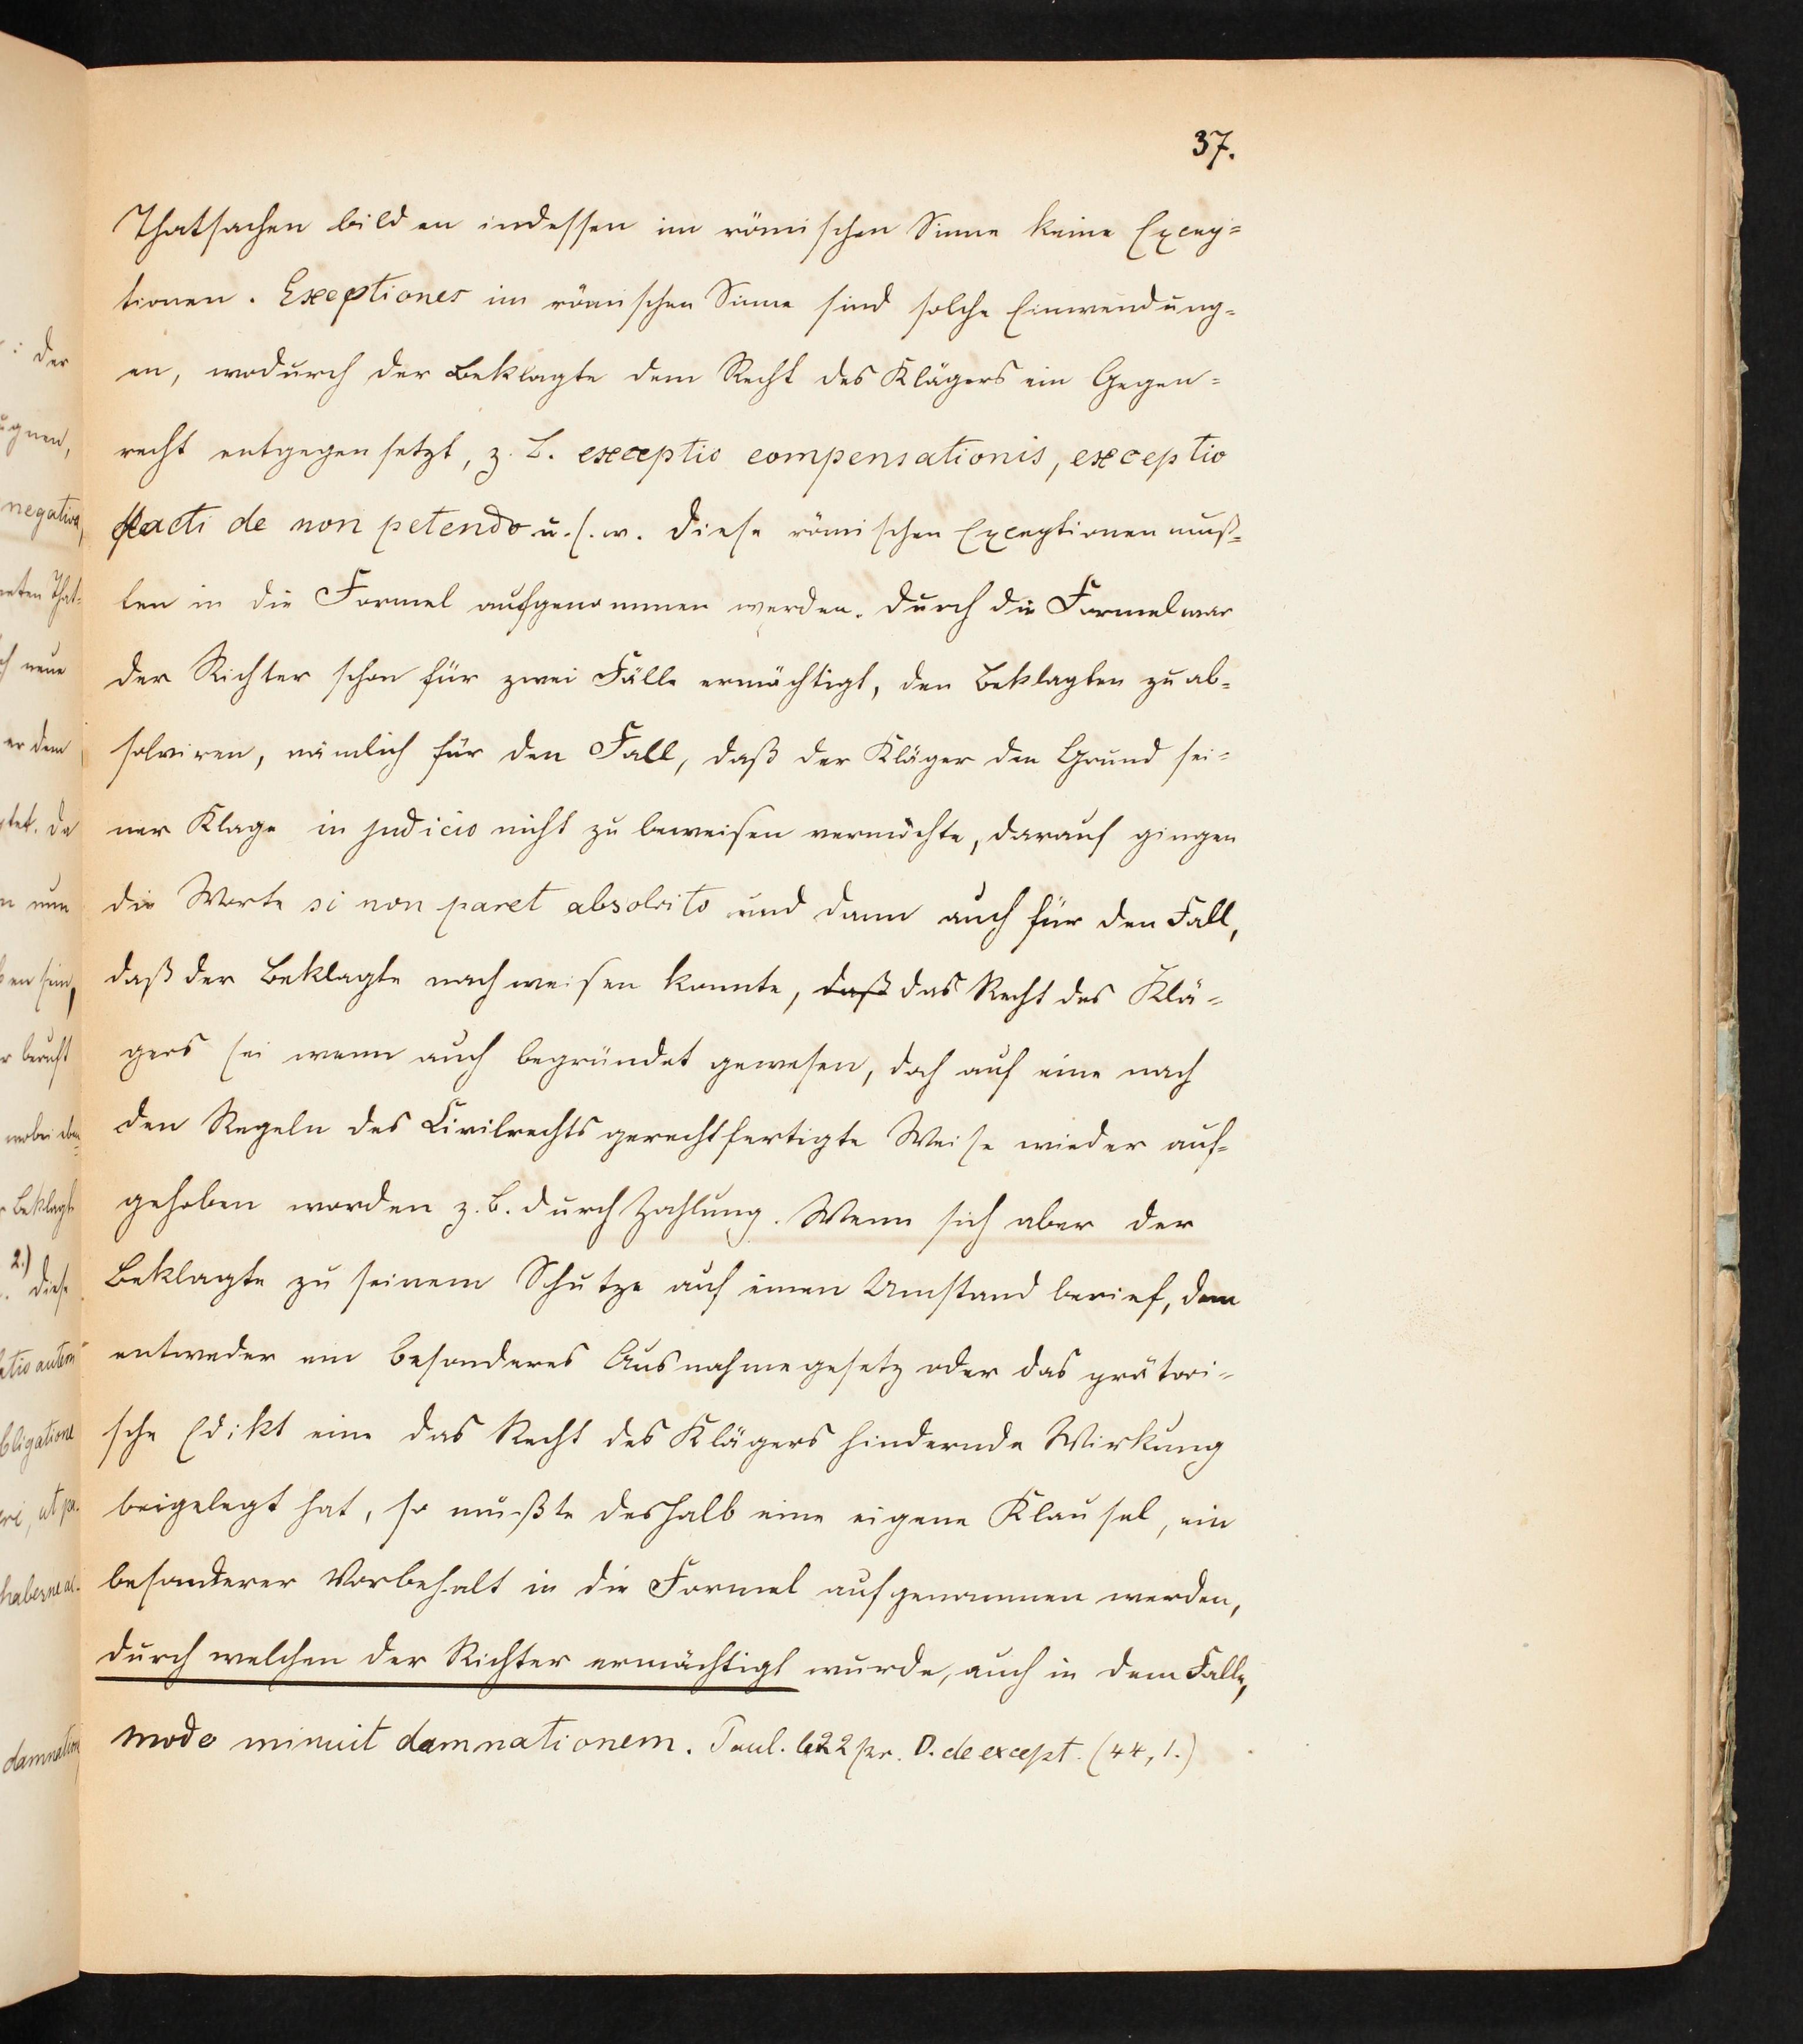 37.
Thatsachen bilden indessen im römischen Sinne keine Excep=
tionen. Exceptiones im römischen Sinne sind solche Einwendung=
en, wodurch der Beklagte dem Recht des Klägers ein Gegen=
recht entgegensetzt, z. B. exceptio compensationis, exceptio
pacti de non petendo u. s. w. Diese römischen Exceptionen muß=
ten in die Formel aufgenommen werden. Durch die Formel war
der Richter schon für zwei Fälle ermächtigt, den Beklagten zu ab=
solviren, nämlich für den Fall, daß der Kläger den Grund sei=
ner Klage in judicio nicht zu beweisen vermöchte, darauf gingen
die Worte si non paret absolvito und dann auch für den Fall,
daß der Beklagte nachweisen konnte, daß das Recht des Klä=
gers sei wenn auch begründet gewesen, doch auf eine nach
den Regeln des Civilrechts gerechtfertigte Weise wieder auf=
gehoben worden z. B. durch Zahlung. Wenn sich aber der
Beklagte zu seinem Schutze auf einen Umstand berief, dem
entweder ein besonderes Ausnahmegesetz oder das prätori=
sche Edikt eine das Recht des Klägers hindernde Wirkung
beigelegt hat, so mußte deshalb eine eigene Klausel, ein
besonderer Vorbehalt in die Formel aufgenommen werden,
durch welchen der Richter ermächtigt wurde, auch in dem Falle,
modo minuit damnationem. Paul. l. 22 pr. D. de except. (44, 1.)